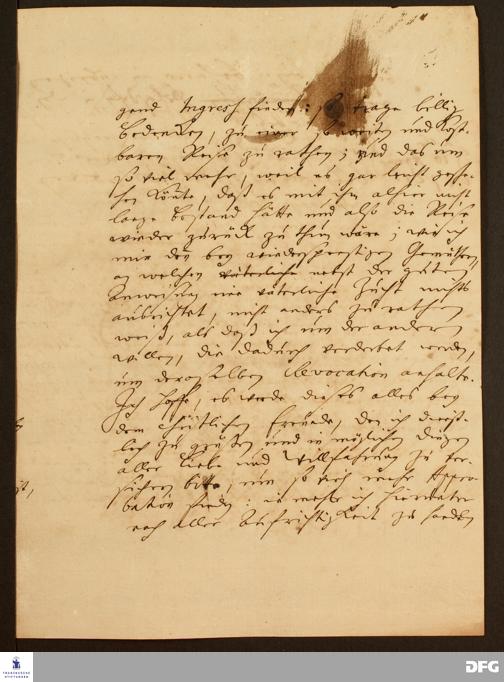 gend Ingress finde: so trage billig
bedencken, zu einer so weiten und kost-
baren Reise zu rathen; und das um
so viel mehr, weil es gar leicht gesche-
hen könte, daß es mit ihm alhier nicht
lange bestand hätte und also die Reise
wieder zurück zu thun wäre; wie ich
mir den bey wiederspenstigen Gemüthern,
an welchen nebst der guten
Anweisung eine väterliche Zucht nichts
ausrichtet, nicht anders zu rathen
weiß, als daß ich um der andern
willen, die dadurch verderbet werden,
um deroselben Revocation anhalte.
Ich hoffe, es werde dieses alles bey
dem Christlichen Freunde, den ich dienst-
lich zu grüßen und in möglichen Dingen
aller Liebe und Willfahrung zu ver-
sichern bitte, um so viel mehr Appro-
bation finden: ie mehr ich hierunter
nach aller Aufrichtigkeit zu handeln
TRANCKESCHE
STIFTUNGEN
DFG